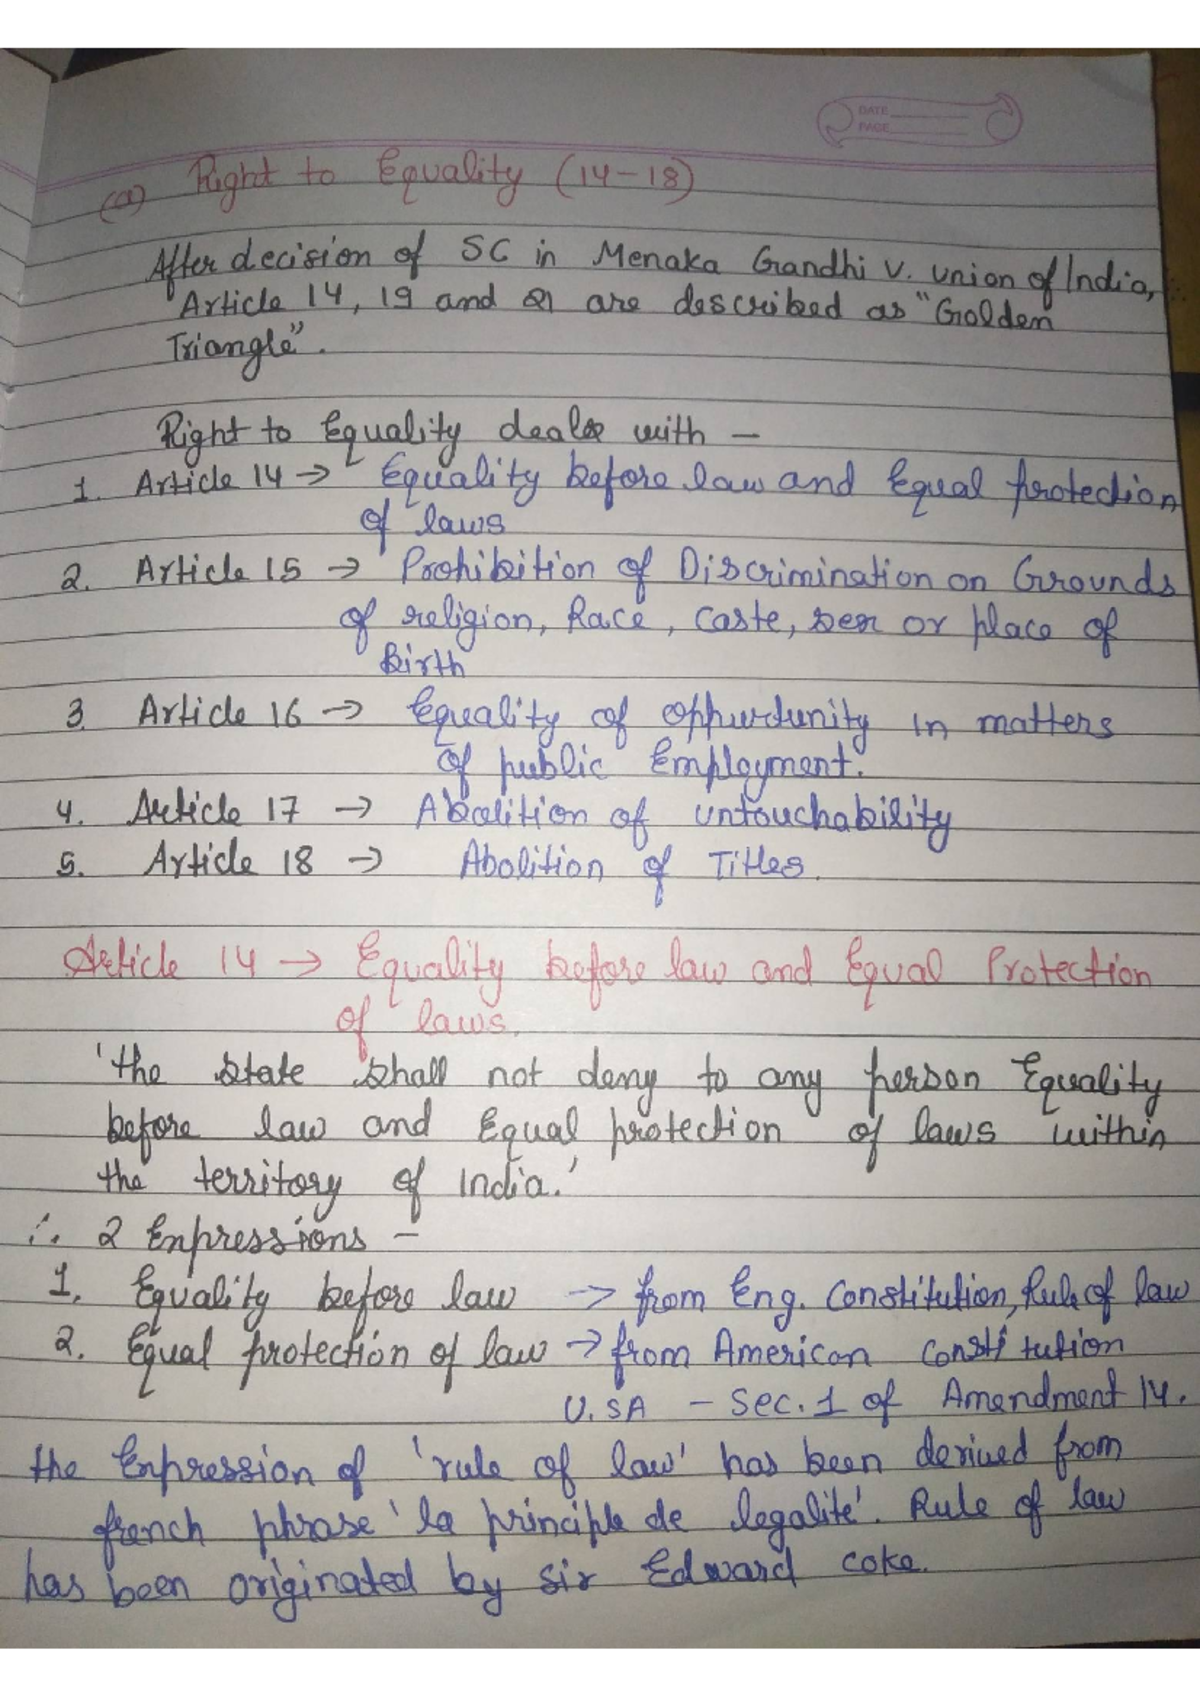 DATE
PAGE
(a) Right to Equality (14-18)
After decision of SC in Menaka Gandhi v. union of India,
Article 14, 19 and 21 are described as "Golden
Triangle".
Right to Equality deals with -
1. Article 14 → Equality before law and Equal protection
of laws
2. Article 15 → Prohibition of Discrimination on Grounds
of religion, Race, caste, sex or place of
Birth
3. Article 16 → Equality of oppurtunity in matters
of public Employment.
4. Article 17 → Abolition of untouchability
5. Article 18 → Abolition of Titles.
Article 14 → Equality before law and Equal Protection
of laws.
'the state shall not deny to any person Equality
before law and Equal protection of laws within
the territory of India.'
∴ 2 Expressions -
1. Equality before law → from Eng. Constitution, Rule of law
2. Equal protection of law → from American constitution
U.SA - Sec. 1 of Amendment 14.
the Expression of 'rule of law' has been derived from
french phrase 'la principle de legalité'. Rule of law
has been originated by sir Edward coke.